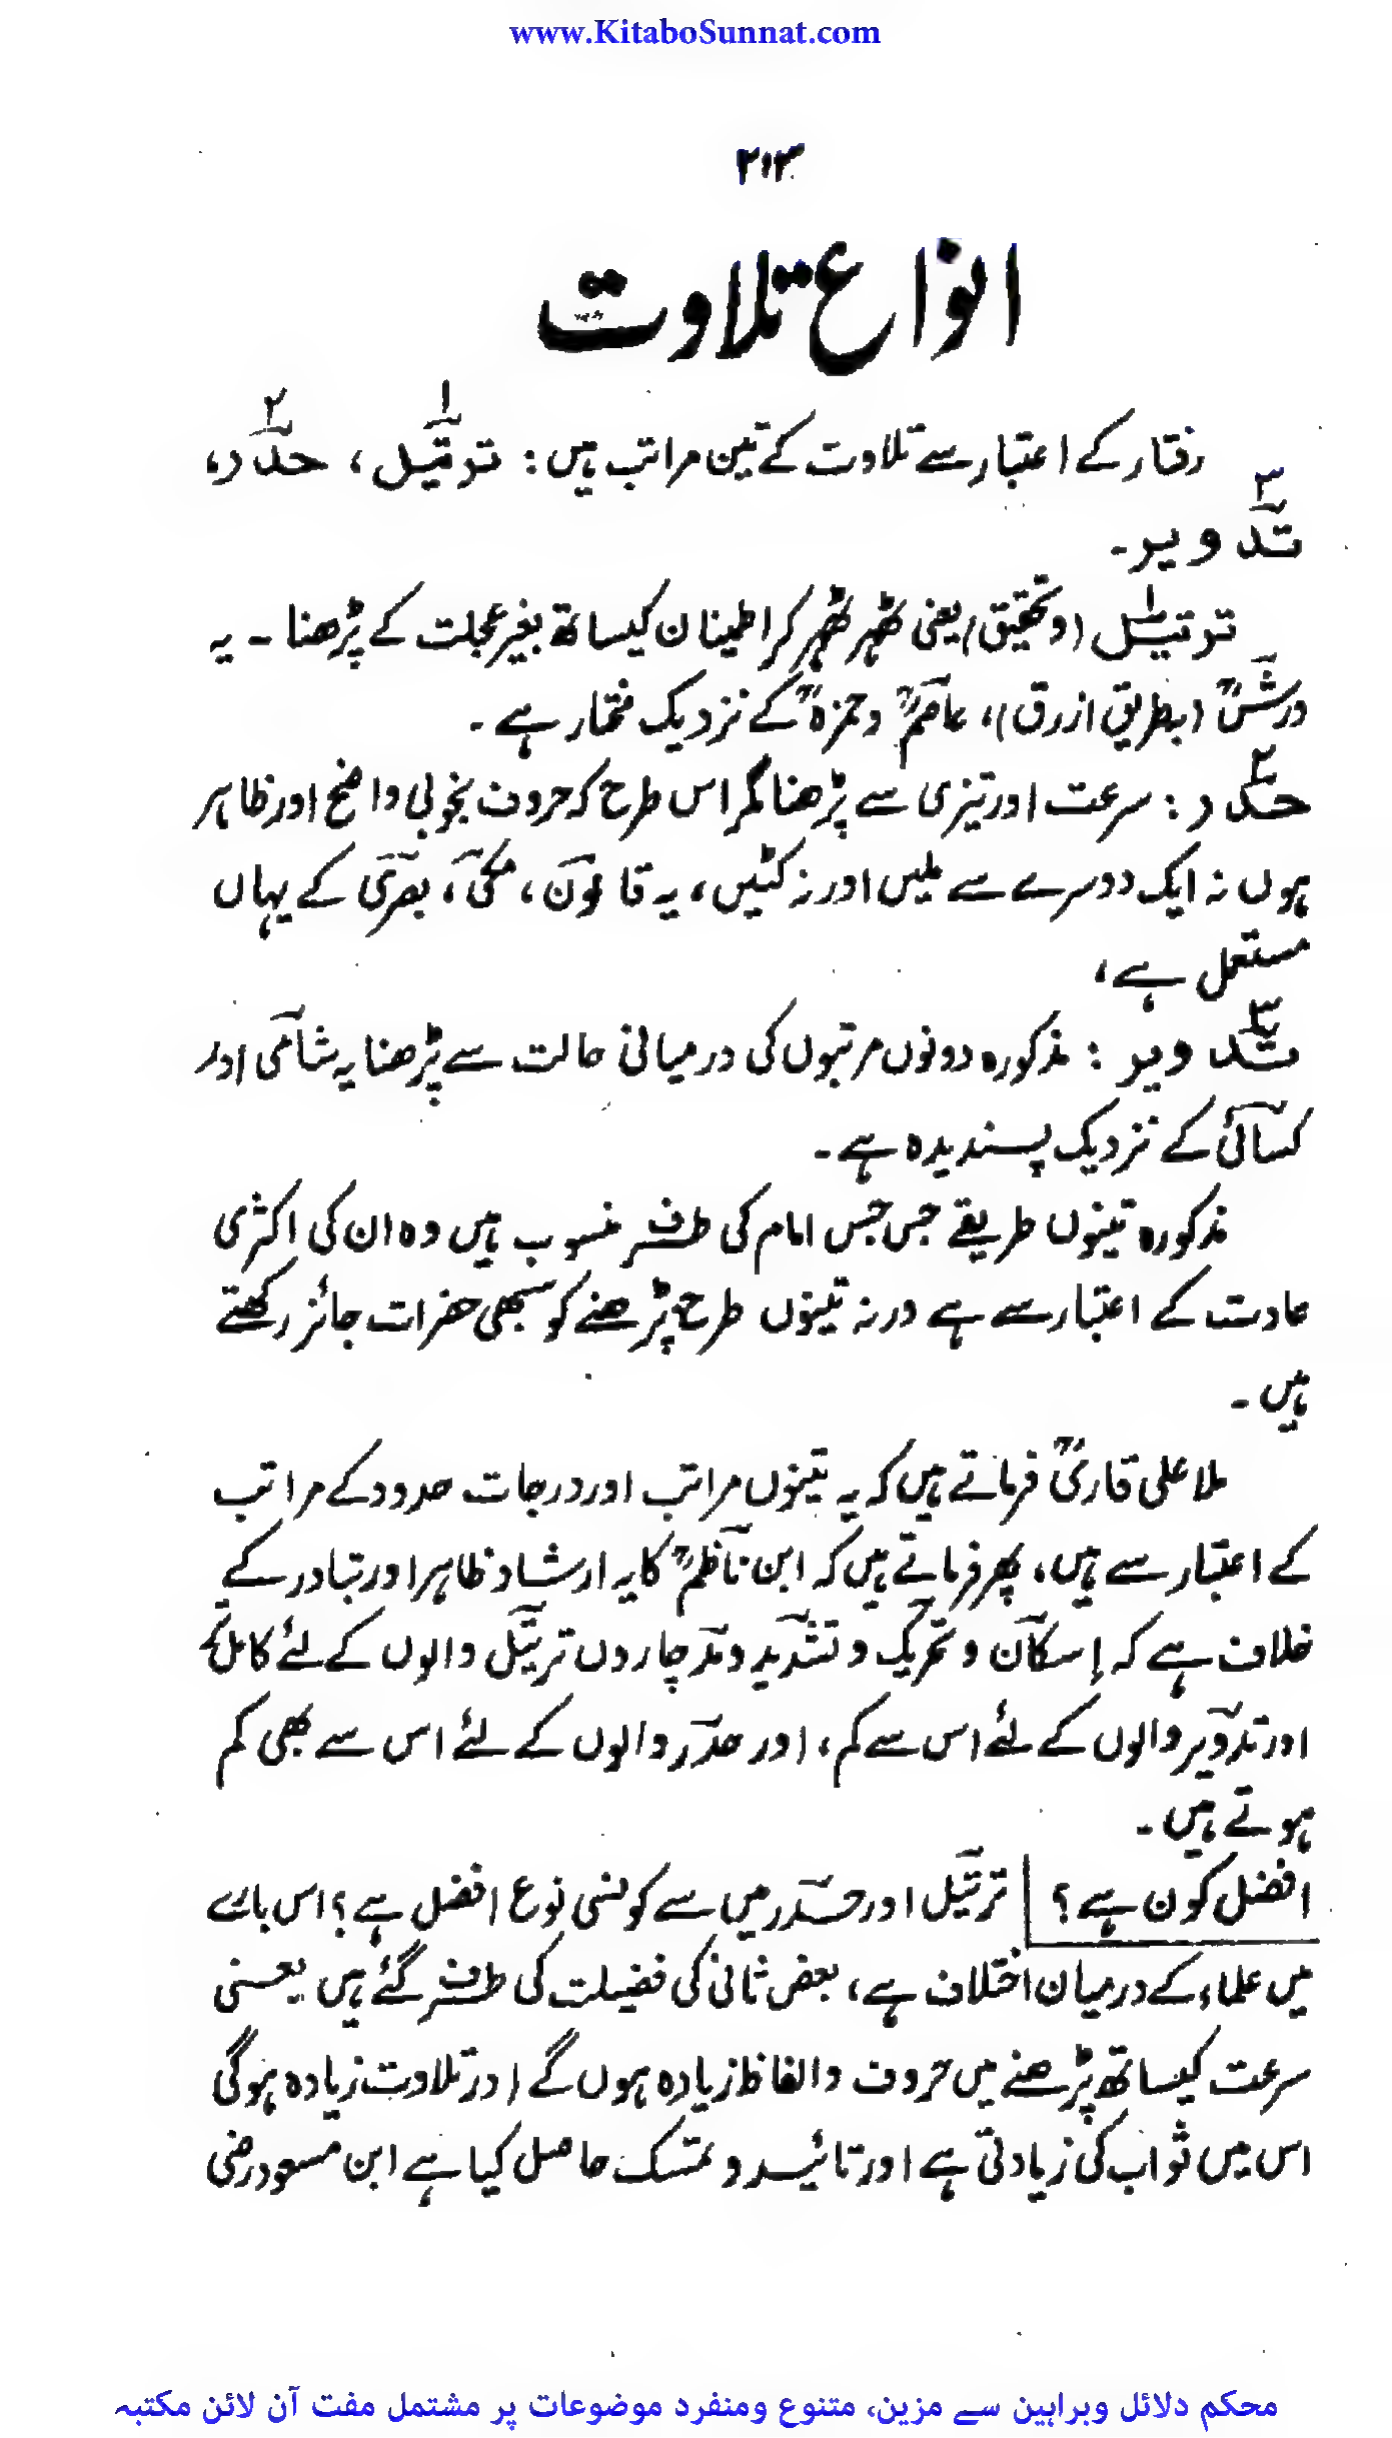 www.KitaboSunnat.com
۲۱۳
انواع تلاوت
رفتار کے اعتبار سے تلاوت کے تین مراتب ہیں : ترتیل ۱ ، حدر ۲ ،
تدویر ۳ ۔
ترتیل ۱ (وتحقیق) یعنی ٹھہر ٹھہر کر اطمینان کیساتھ بغیر عجلت کے پڑھنا ۔ یہ
ورشؒ (بطریق ازرق)، عاصمؒ وحمزہؒ کے نزدیک مختار ہے ۔
حدر ۲ : سرعت اور تیزی سے پڑھنا مگر اس طرح کہ حروف بخوبی واضح اور ظاہر
ہوں نہ ایک دوسرے سے ملیں اور نہ کٹیں، یہ قالون، مکی، بصری کے یہاں
مستعمل ہے،
تدویر ۳ : مذکورہ دونوں مرتبوں کی درمیانی حالت سے پڑھنا یہ شامی اور
کسائی کے نزدیک پسندیدہ ہے ۔
مذکورہ تینوں طریقے جس جس امام کی طرف منسوب ہیں وہ ان کی اکثری
عادت کے اعتبار سے ہے ورنہ تینوں طرح پڑھنے کو سبھی حضرات جائز رکھتے
ہیں ۔
ملا علی قاریؒ فرماتے ہیں کہ یہ تینوں مراتب اور درجات حدود کے مراتب
کے اعتبار سے ہیں، پھر فرماتے ہیں کہ ابن ناظمؒ کا یہ ارشاد ظاہر اور تبادر کے
خلاف ہے کہ اِسکان و تحریک و تشدید و مد چاروں ترتیل والوں کے لئے کامل تر
اور تدویر والوں کے لئے اس سے کم، اور حدر والوں کے لئے اس سے بھی کم
ہوتے ہیں ۔
افضل کون ہے ؟ ترتیل اور حدر میں سے کونسی نوع افضل ہے؟ اس بارے
میں علماء کے درمیان اختلاف ہے، بعض ثانی کی فضیلت کی طرف گئے ہیں یعنی
سرعت کیساتھ پڑھنے میں حروف والفاظ زیادہ ہوں گے اور تلاوت زیادہ ہوگی
اس میں ثواب کی زیادتی ہے اور تائید و تمسک حاصل کیا ہے ابن مسعود رضی
محکم دلائل وبراہین سے مزین، متنوع ومنفرد موضوعات پر مشتمل مفت آن لائن مکتبہ